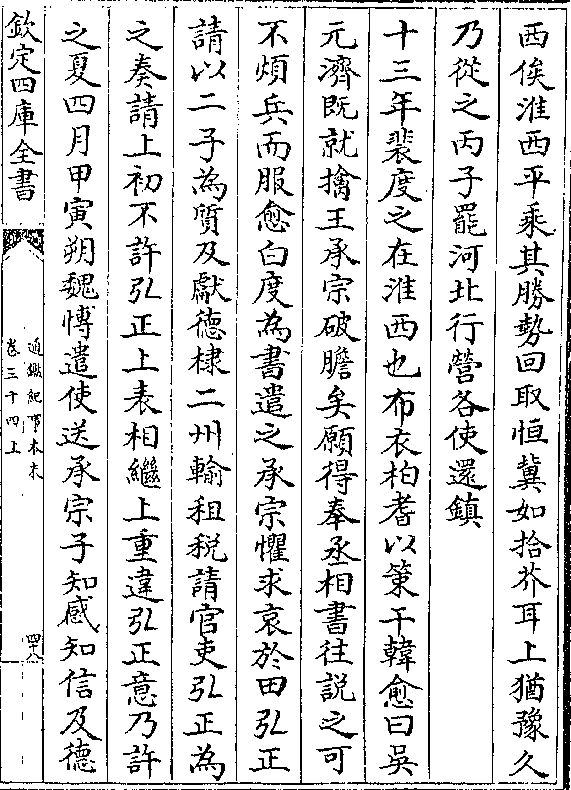 西俟淮西平乘其勝勢回取恒冀如拾芥耳上猶豫久
乃從之丙子罷河北行營各使還鎮
十三年裴度之在淮西也布衣柏耆以策干韓愈曰吳
元濟既就擒王承宗破膽矣願得奉丞相書往説之可
不煩兵而服愈白度為書遣之承宗懼求哀於田弘正
請以二子為質及獻德棣二州輸租税請官吏弘正為
之奏請上初不許弘正上表相繼上重違弘正意乃許
之夏四月甲寅朔魏博遣使送承宗子知感知信及德
欽定四庫全書
通鑑紀事本末
卷三十四上
四十八